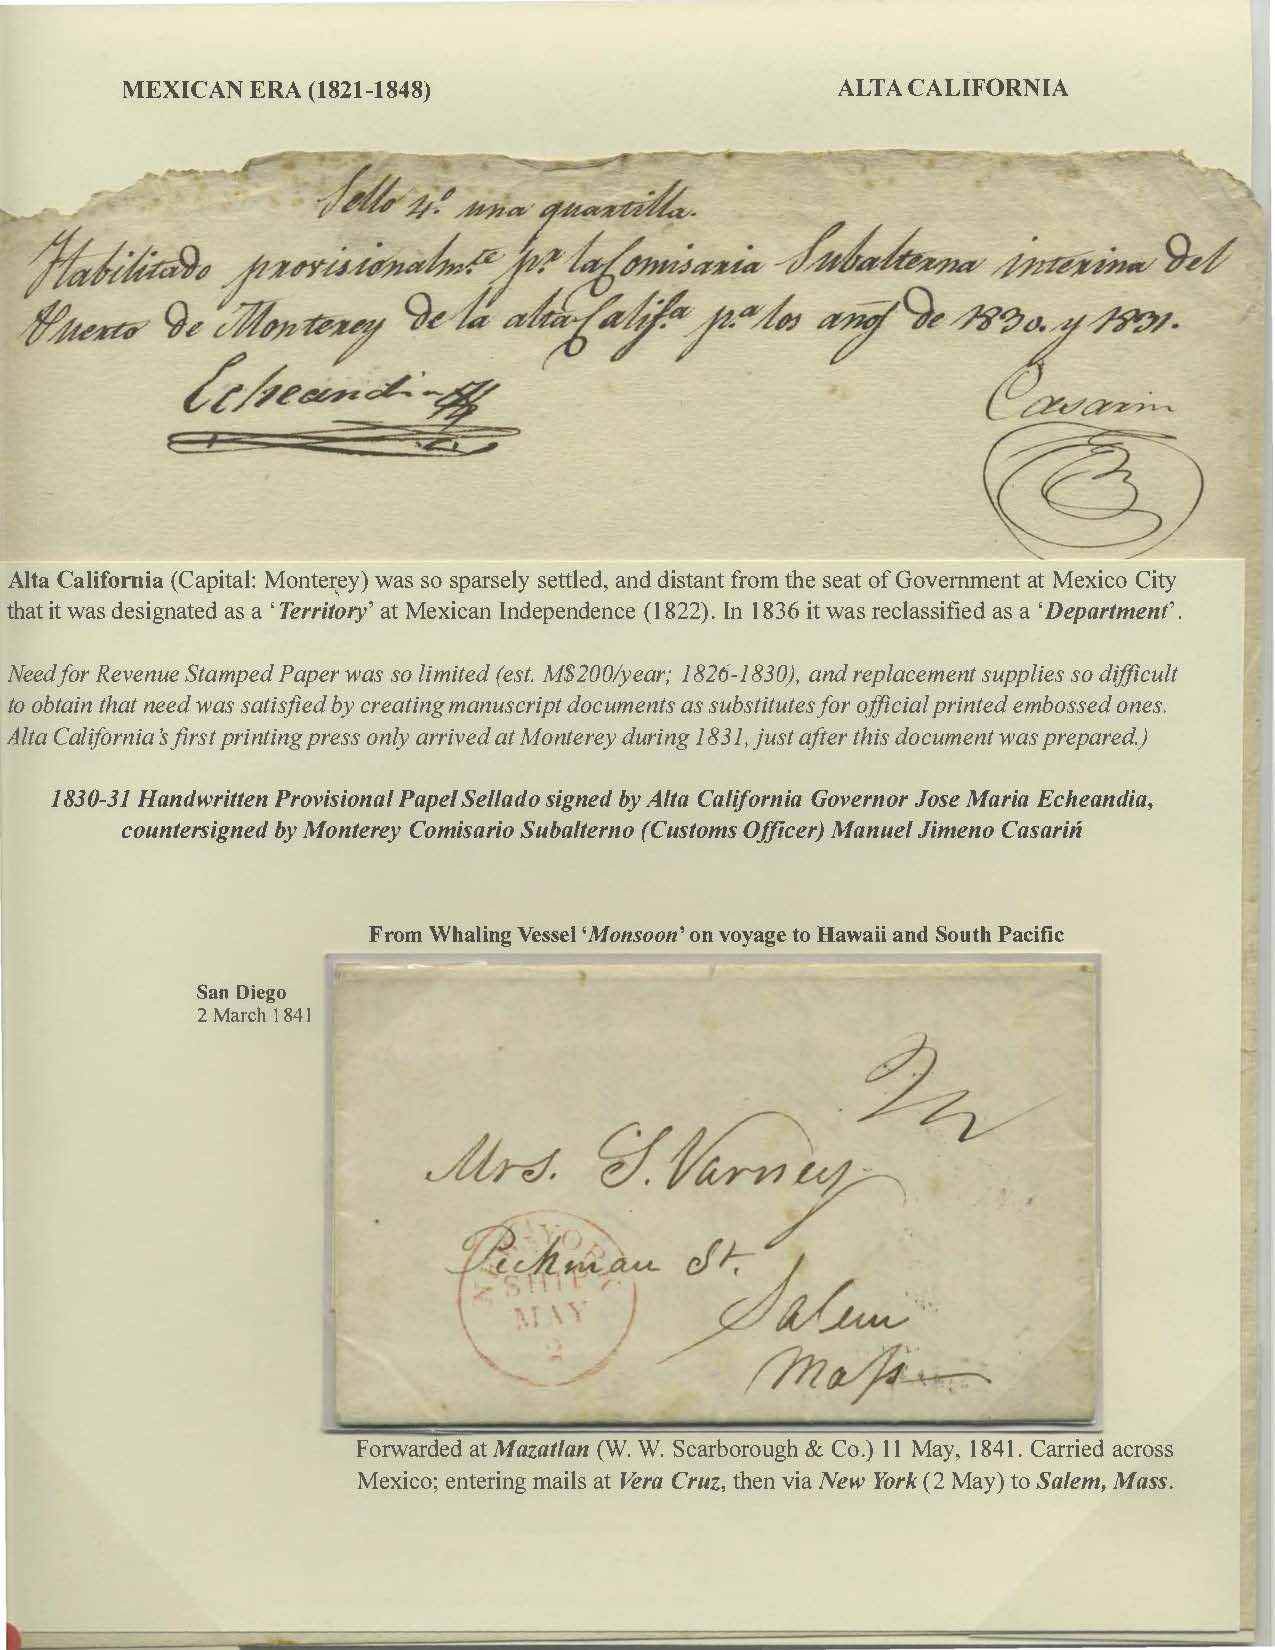 MEXICAN ERA (1821-1848) ALTA CALIFORNIA
Sello 4.º una quartilla.
Habilitado provisionalm.te p.r la Comisaria Subalterna interina del
Puerto de Monterey de la alta Calif.a p.a los añoˢ de 1830. y 1831.
Echeandia
Casarin
Alta California (Capital: Monterey) was so sparsely settled, and distant from the seat of Government at Mexico City
that it was designated as a ‘Territory’ at Mexican Independence (1822). In 1836 it was reclassified as a ‘Department’.
Need for Revenue Stamped Paper was so limited (est. M$200/year; 1826-1830), and replacement supplies so difficult
to obtain that need was satisfied by creating manuscript documents as substitutes for official printed embossed ones.
Alta California's first printing press only arrived at Monterey during 1831, just after this document was prepared.)
1830-31 Handwritten Provisional Papel Sellado signed by Alta California Governor Jose Maria Echeandia,
countersigned by Monterey Comisario Subalterno (Customs Officer) Manuel Jimeno Casariń
From Whaling Vessel ‘Monsoon’ on voyage to Hawaii and South Pacific
San Diego
2 March 1841
Mrs. S. Varney
Peckman St.
Salem
Mass
NEW YORK
SHIP
MAY
2
Forwarded at Mazatlan (W. W. Scarborough & Co.) 11 May, 1841. Carried across
Mexico; entering mails at Vera Cruz, then via New York (2 May) to Salem, Mass.